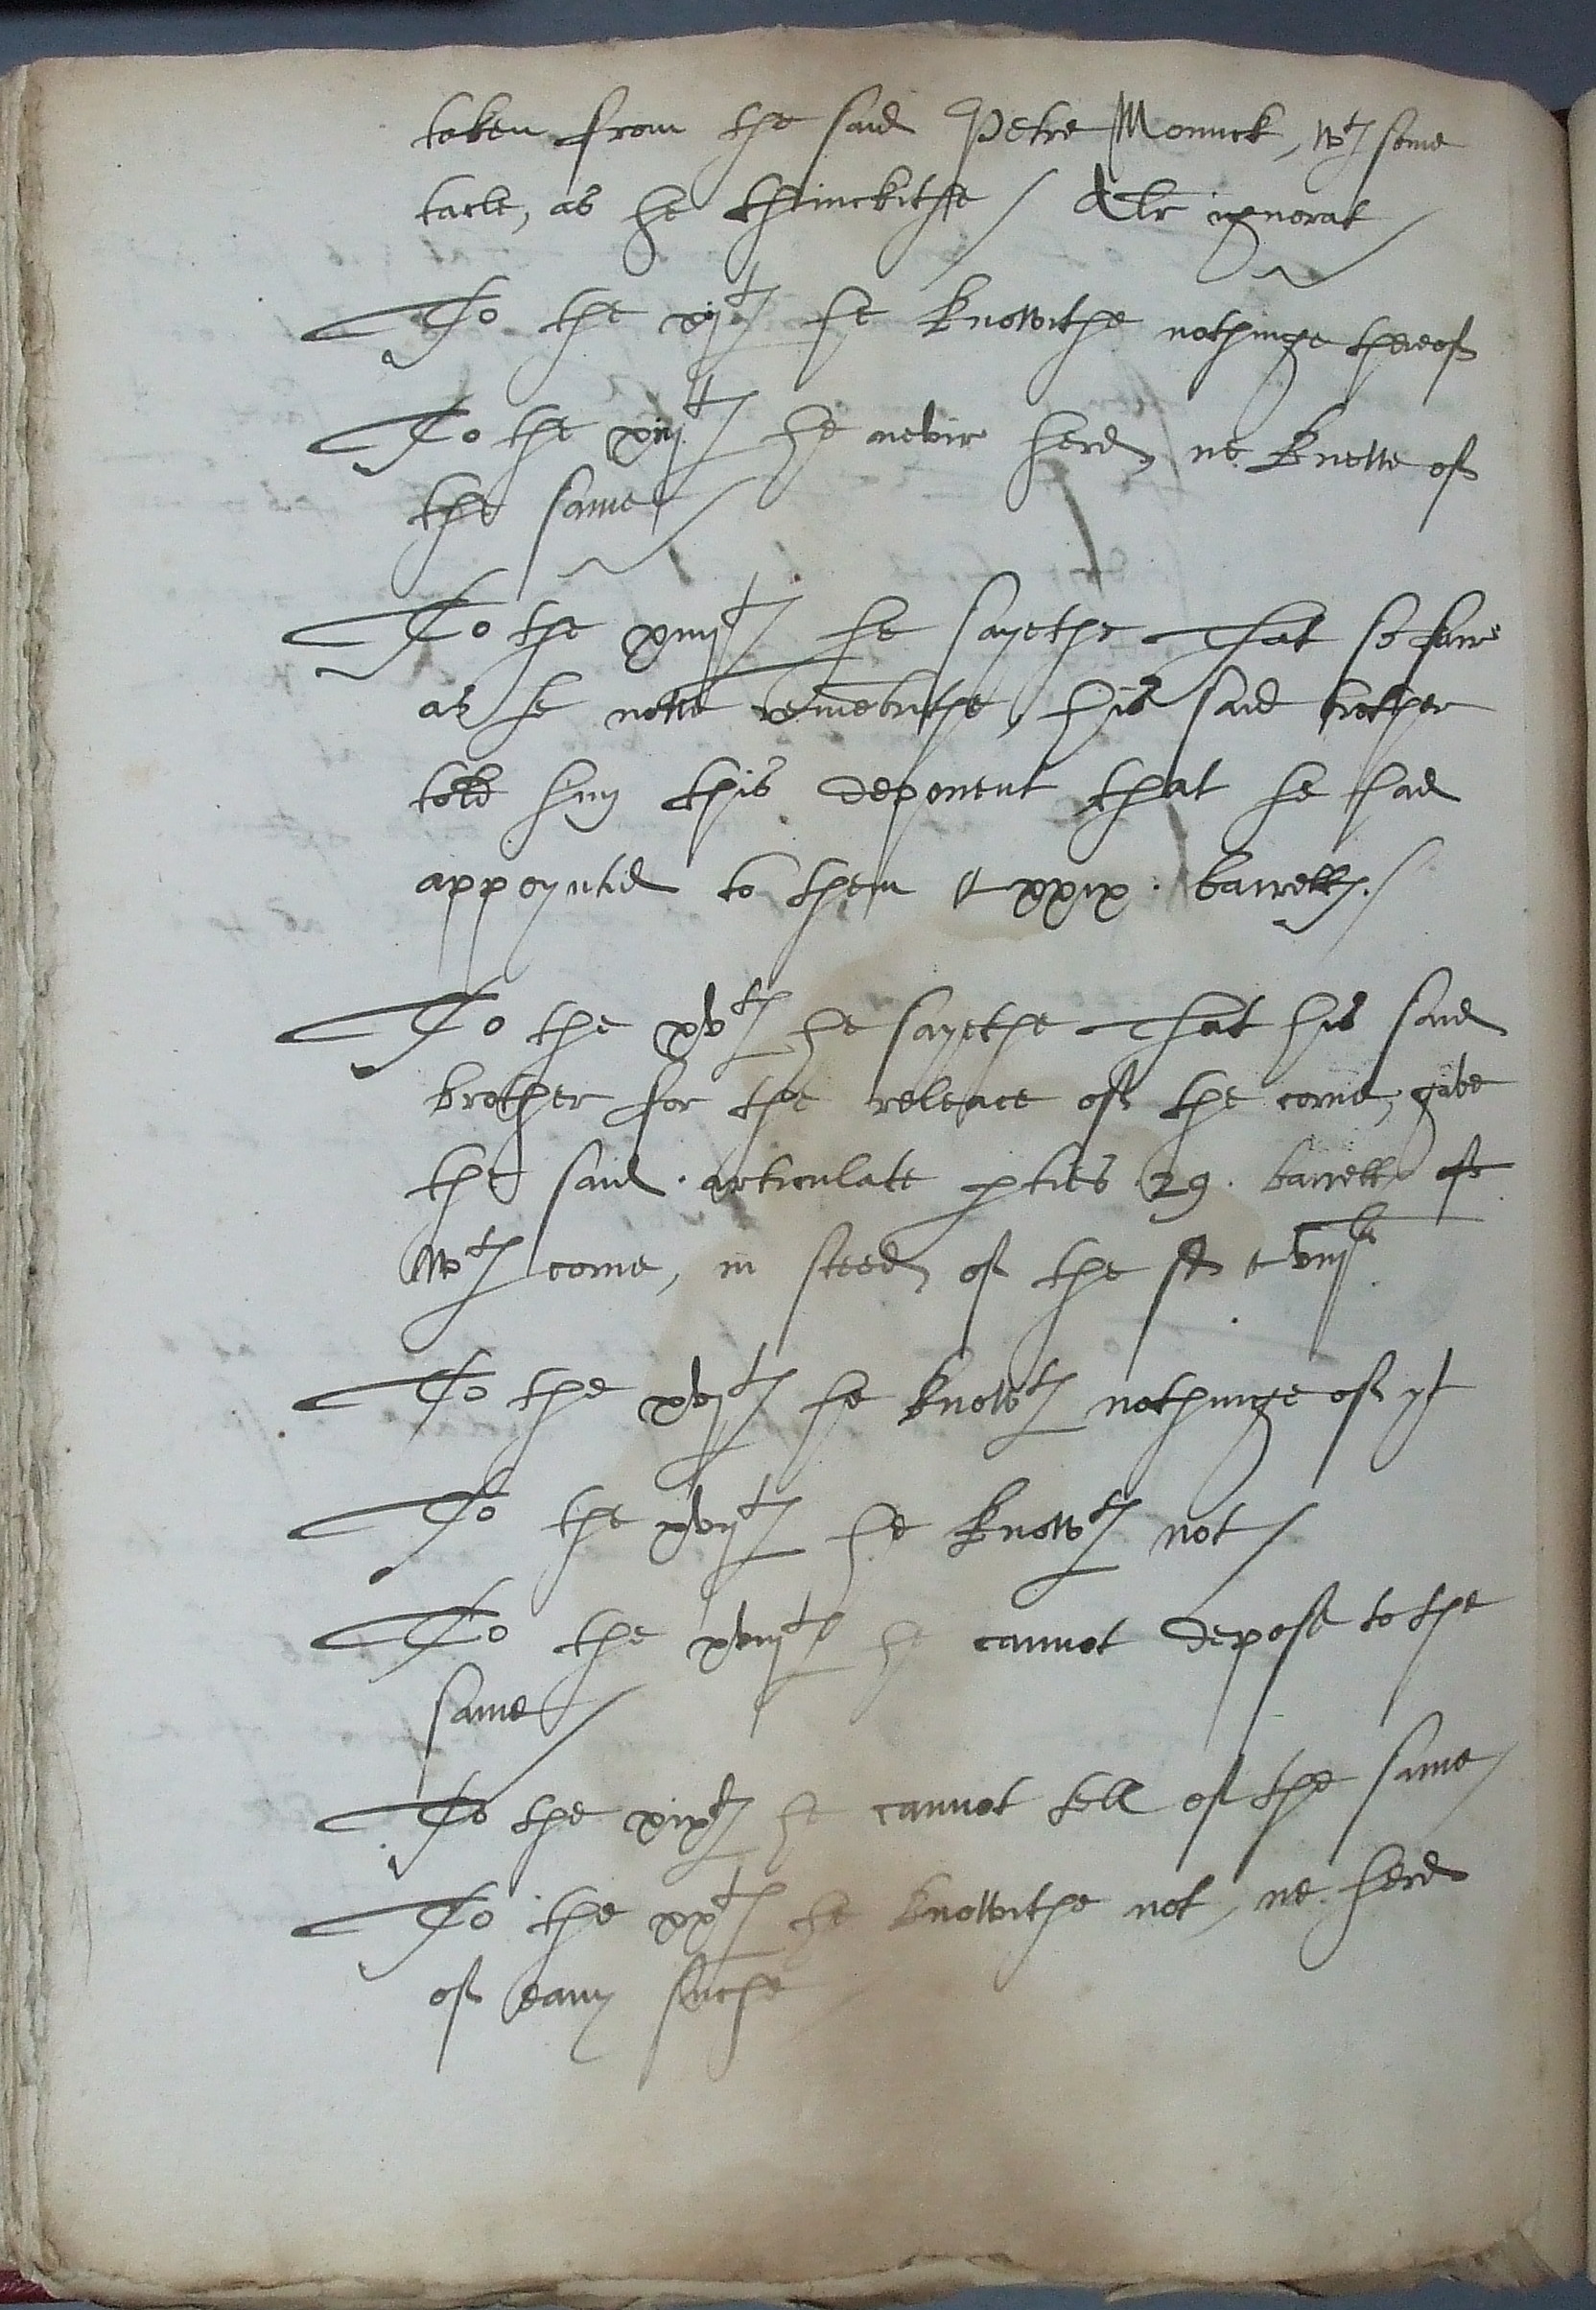 taken from the said Petre Monnck, wth some
tacle, as he thinckithe / Alr ignorat /
To the xijth he knowithe nothinge thereof
To the xiijth he nevir herd, ne knewe of
the same /
To the xiiijth he sayethe That so farre
as he nowe remēbrithe, his said brother
told hym this deponent that he had
appoyntid to them xxix. barrells /
To the xvth he sayethe That his said
brother for the releace of the corne, gave
the said articulate pties 29. barrells of
wth corne, in steed of the sd
To the xvjth he knowth nothinge of yt
To the xvijth he knowth not /
To the xviijth he cannot depose to the
same /
To the xixth he cannot tell of the same /
To the xxth he knowithe not, ne herd
of eany suche /